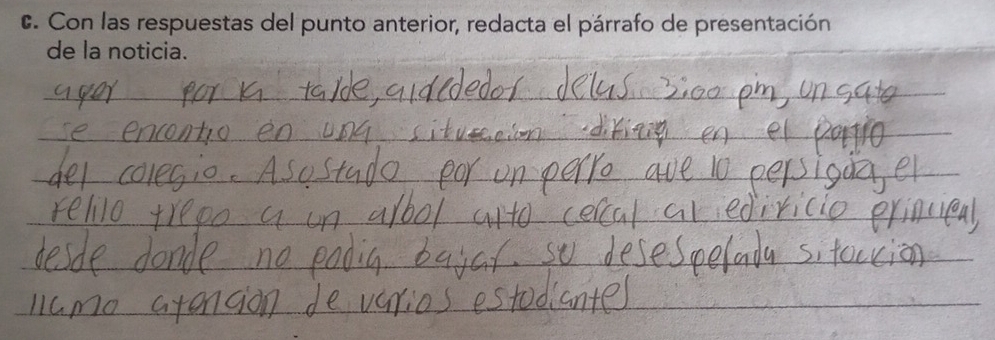 C. Con las respuestas del punto anterior, redacta el párrafo de presentación
de la noticia.
ayer por la tarde, alrededor delas 3:00 pm, un gato
se encontro en una situacion dificil en el patio
del colegio. Asostado por un perro que lo persiguia, el
felino trepo a un arbol alto cercal al edificio principal,
desde donde no podia bajar. su desesperada situaccion
llamo atencion de varios estodiantes